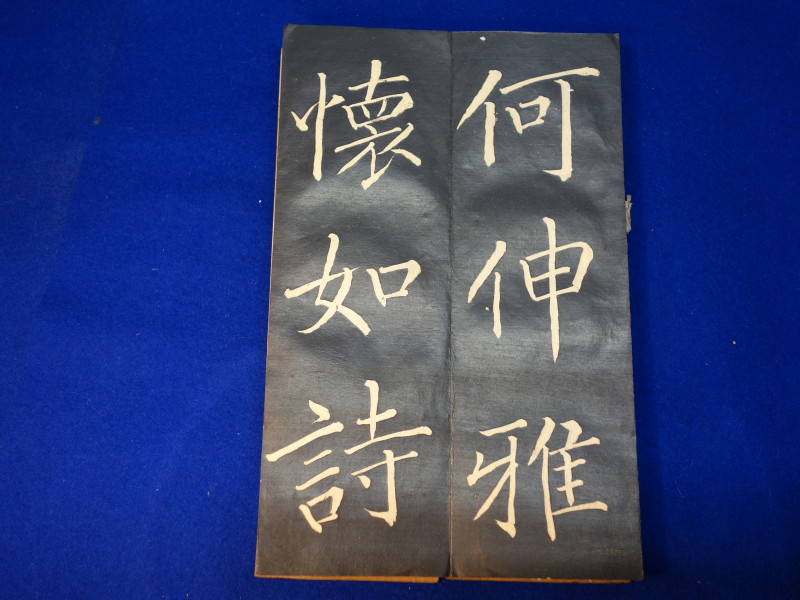 何伸雅
懷如詩